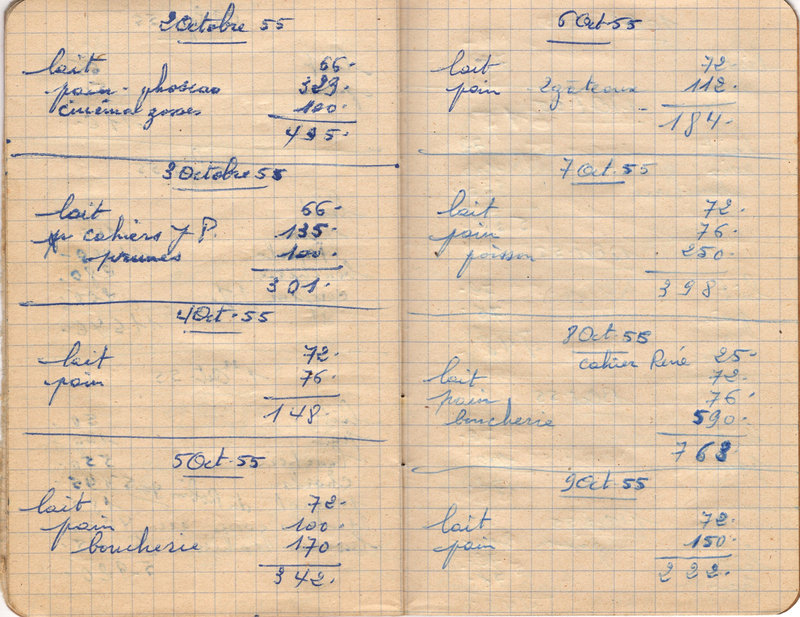 2 Octobre 55
lait 66-
pain - phoscao 329-
cinéma gosses 100-
495-
3 Octobre 55
lait 66-
cahiers J P. 135-
prunes 100-
301-
4 Oct. 55
lait 72-
pain 76-
148-
5 Oct. 55
lait 72-
pain 100-
boucherie 170
342-
6 Oct. 55
lait 72-
pain 2 gâteaux - 112-
184-
7 Oct. 55
lait 72-
pain 76-
poisson 250
398-
8 Oct. 55
cahier René 25-
lait 72-
pain 76-
boucherie 590-
768
9 Oct. 55
lait 72-
pain 150-
222-